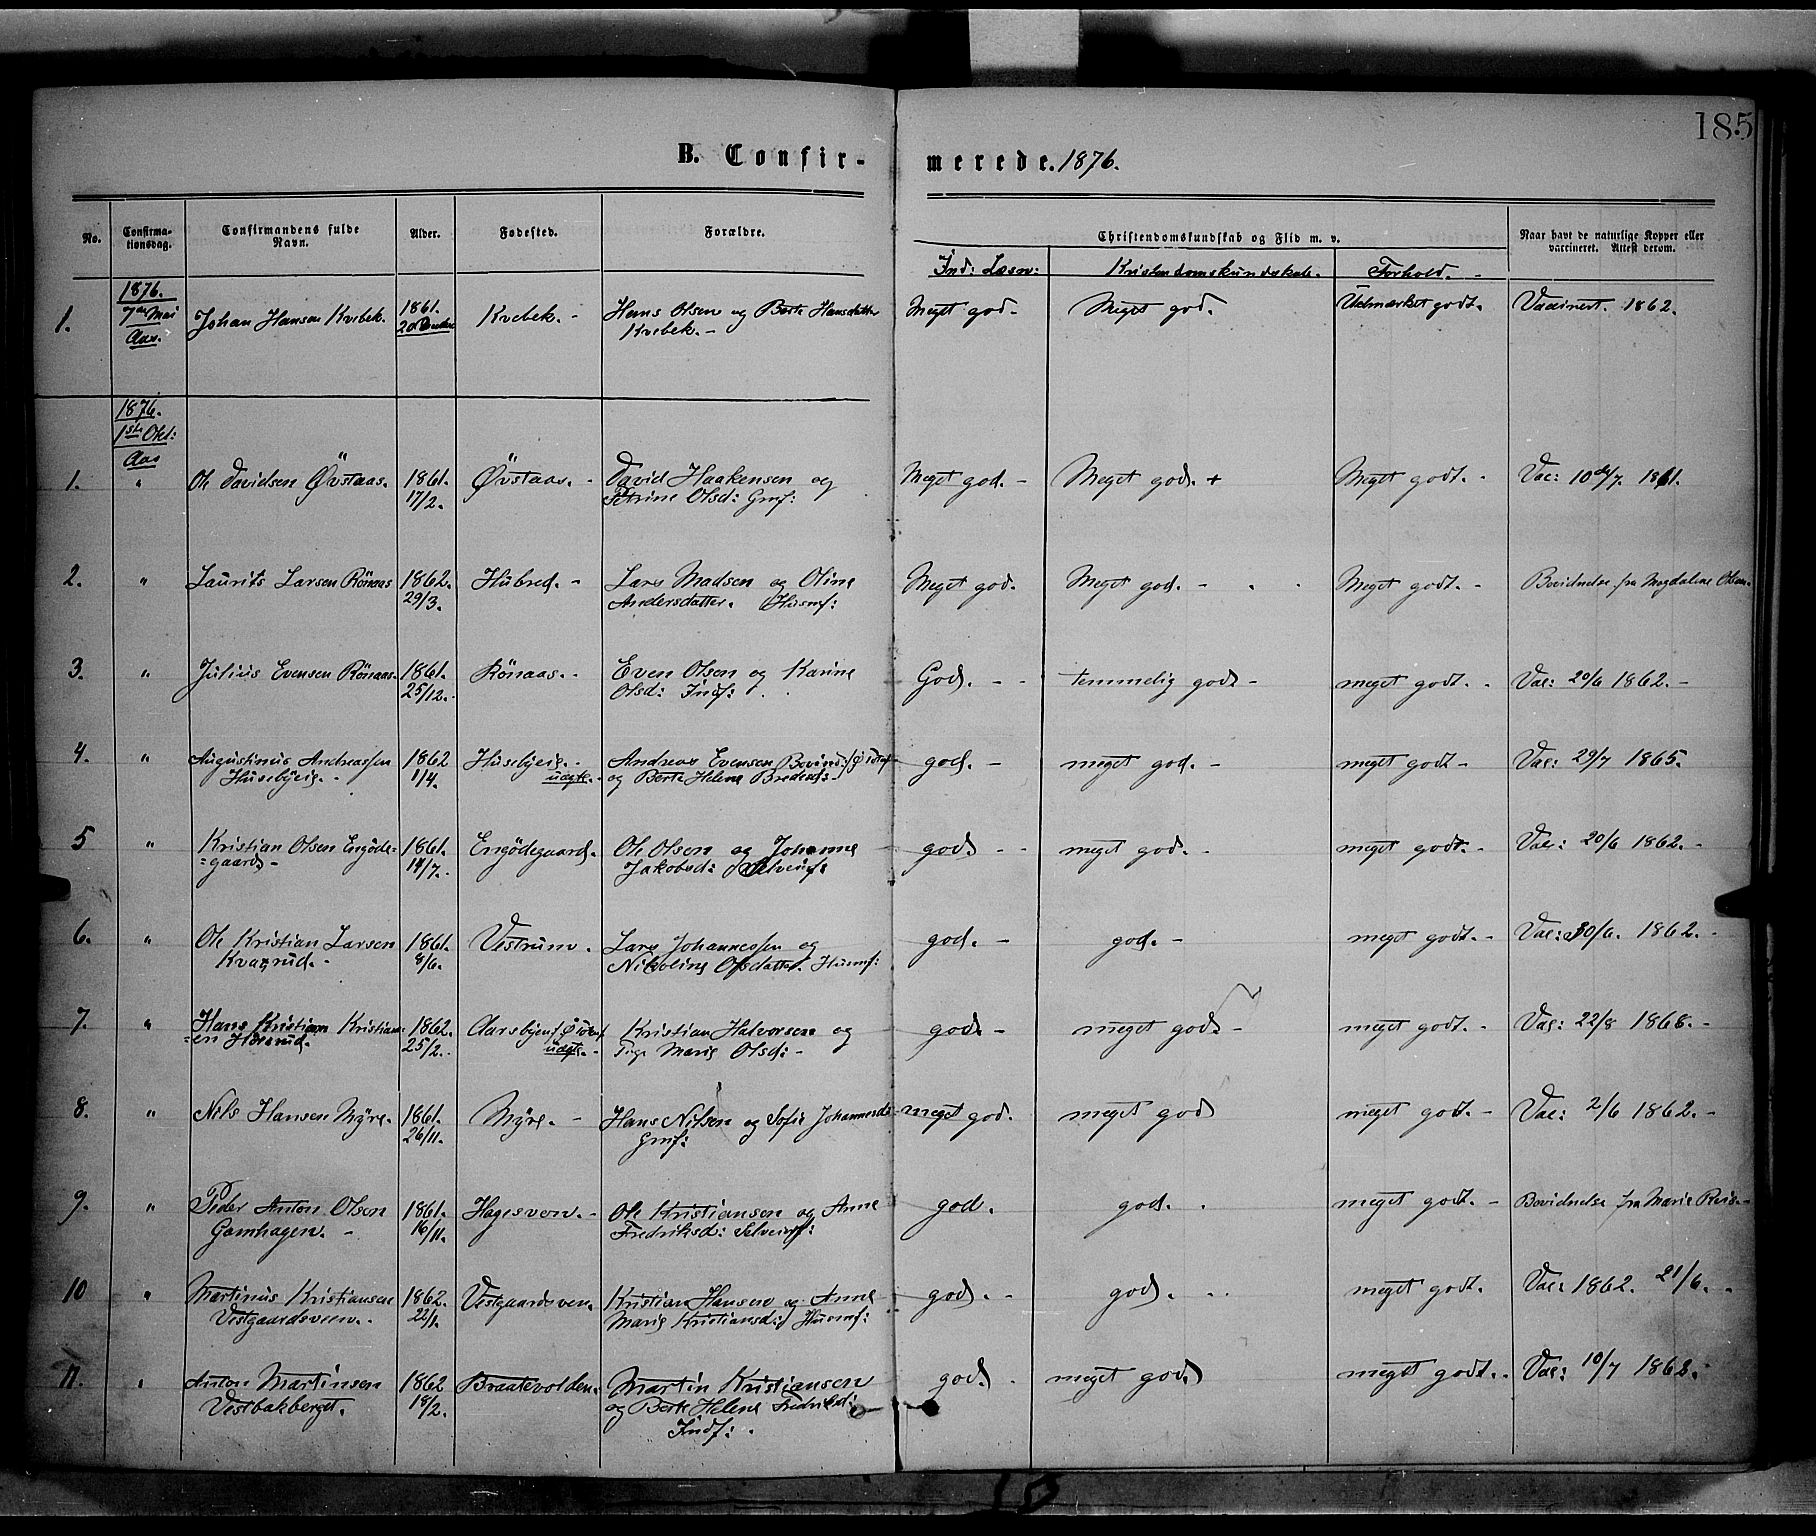 185
B. Confir- merede. 1876.
No. Confirma-tionsdag. Confirmandens fulde Navn. Alder. Fødested. Forældre. Christendomskundskab og Flid m. v. Naar havt de naturlige Kopper eller vaccineret. Attest derom.
Ind: Læsn: Kristendomskundskab. Forhold. -
1876.
1. 7de Mai Johan Hansen Kvebek. 1861. Kvebek. - Hans Olsen og Berte Hansdatter Meget god. Meget god. Udmærket godt. Vaccinert. 1862.
Aas. Kvebek. -
1876.
1ste Okt:
Aas
1. " Ole Davidsen Øvstaas. 1861. Øvstaas. - David Haakensen og Meget god. - Meget god. + Meget godt. - Vac: 10de/7. 1861.
17/2. Petrine Olsd: Grmf:
2. " Laurits Larsen Rönaas 1862. Hubred. - Lars Madsen og Oline Meget god. Meget god. - Meget godt. - Bevidnelse fra Magdalene Olsen.
29/3. Andersdatter. Husmf:
3. " Julius Evensen Rönaas. 1861. Rönaas. - Even Olsen og Karine God. - - temmelig god - meget godt. - Vac: 20/6 1862. -
25/12. Olsd: Indf:
4. " Augustinus Andreassen 1862 Husebyeie. - Andreas Evensen god. - meget god. - meget godt - Vac: 29/7 1865.
Husebyeie. - 1/4. uægte. - og Berte Helene Bredesd: -
5 " Kristian Olsen Engöde- 1861. Engödegaard. Ole Olsen og Johanne god. - - meget god. - meget godt. - Vac: 20/6 1862. -
=gaard - 14/7. Jakobsd: Selveierf:
6. " Ole Kristian Larsen 1861. Vestrum. Lars Johannessen og god. - god. - meget godt. - Vac: 30/6. 1862. -
Kvarud. - 8/6. Nikoline Olsdatter. Husmf:
7. " Hans Kristian Kristians- 1862. Kristian Halvorsen og god. - meget god. - meget godt. - Vac: 22/8 1868. -
25/2. uægte. - Marie Olsd: -
8. " Nils Hansen Myre. 1861. Myre. - Hans Nilsen og Sofie Johannesd: meget god. meget god meget godt. - Vac: 2/6 1862. -
26/11. Grmf:
9. " Peder Anton Olsen 1861. Hagesveen. - Ole Kristiansen og Anne god. god. meget godt. - Bevidnelse fra Marie
Gamhagen. - 16/11. Fredriksd: Selveierf:
10 " Martinus Kristiansen 1862. Vestgaardsveen. Kristian Hansen og Anne god. - god. meget godt. Vac: 1862. 21/6.
Vestgaardsveen. 22/1. Marie Kristiansd: Husmf:
11. " Anton Martinsen 1862 Braatevolden. Martin Kristiansen god. meget god meget godt. Vac: 10/7 1862.
Vestbakberget. 18/2. og Berte Helene Fredriksd:
Indf: